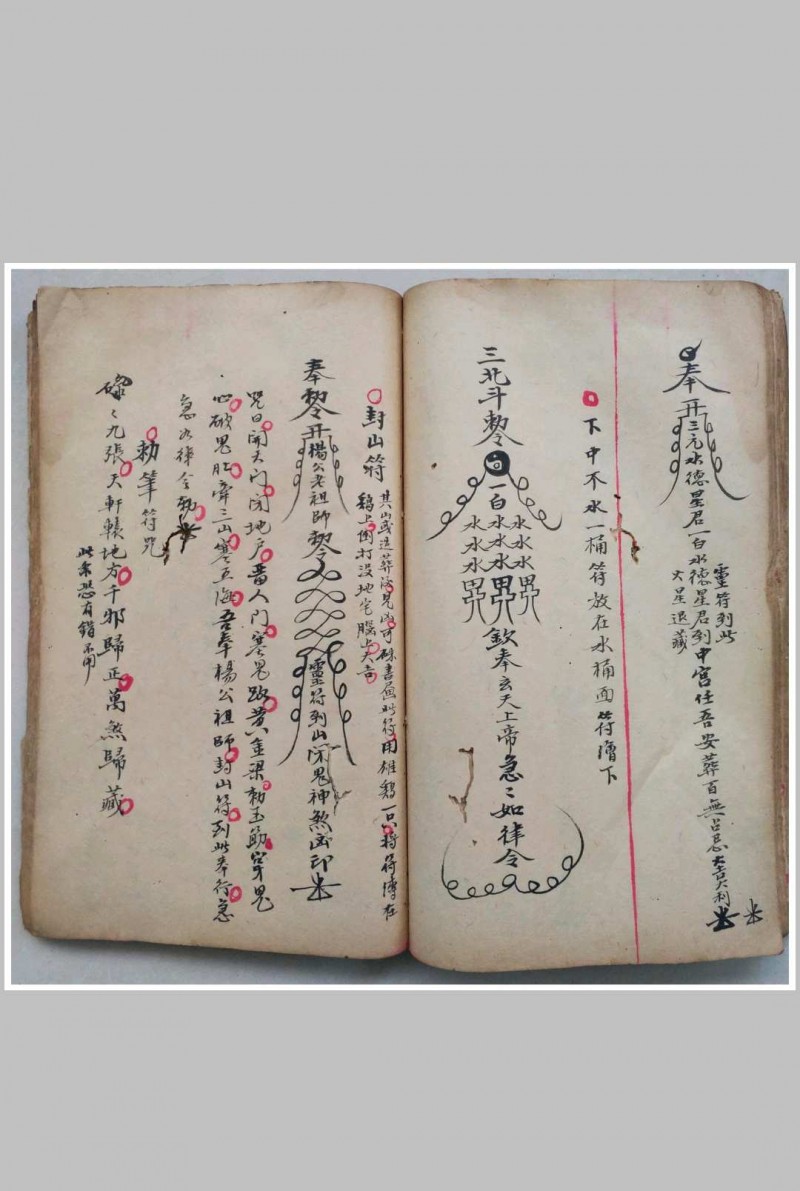 奉
三元水德星君一白水德星君到中宮任吾安葬百無占忌大吉大利
靈符到此
大星退藏
下中不水一桶符放在水桶面符膽下
三北斗勅令
一白
水水水
水水水
水水水
欽奉玄天上帝急〻如律令
封山符
其山或造葬後見凶可硃書此符用雄鷄一只將符縛在
鷄上倒打沒地宅腦上大吉
奉勅令楊公老祖師勅令
靈符到山閉鬼神煞印
咒曰開天門閉地户留人門塞鬼路黃金梁勅玉筋穿鬼
心破鬼肚三山塞五海吾奉楊公祖師封山符到此奉行急
急如律令勅
勅筆符咒
九張天軒轅地方千邪歸正萬煞歸藏
此系恐有錯不用